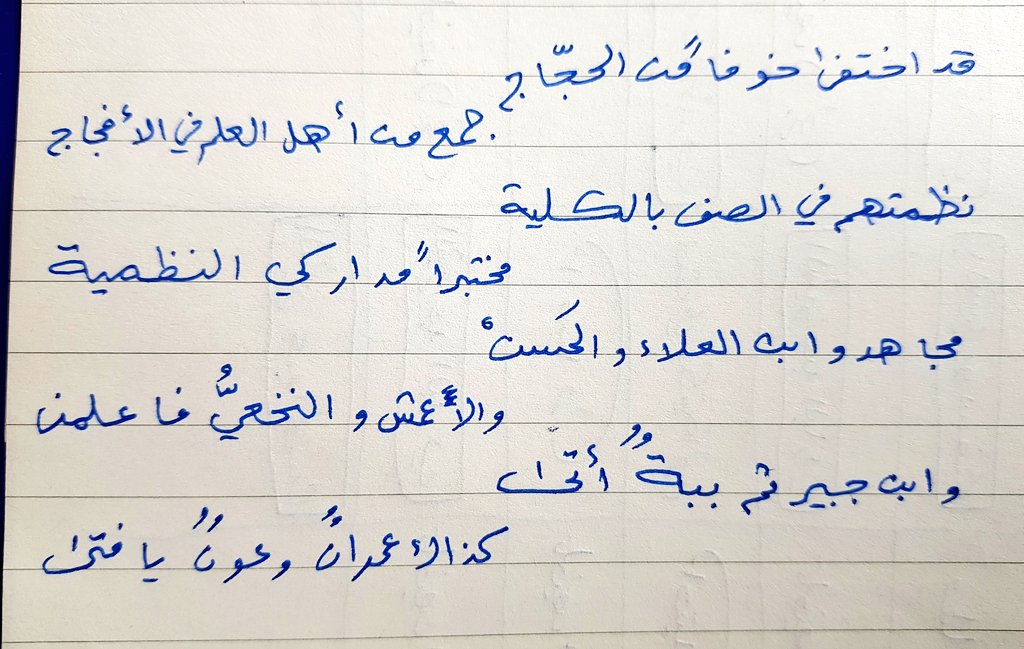 قد اختفىٰ خوفاً من الحجّاج
جمع من أهل العلم في الأفجاج
نظمتهم في الصف بالكلية
مختبراً مداركي النظمية
مجاهد وابن العلاء والحَسنْ
والأعمش والنخعيُّ فاعلمن
وابن جبير ثم ببةٌ أتىٰ
كذاك عمرانٌ وعونٌ يا فتىٰ